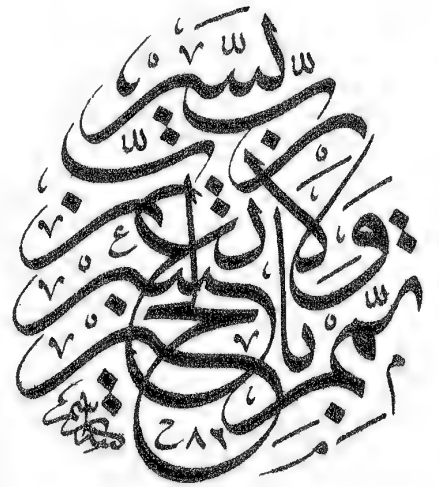 رب يسر ولا تعسر رب تمم بالخير
٨٢